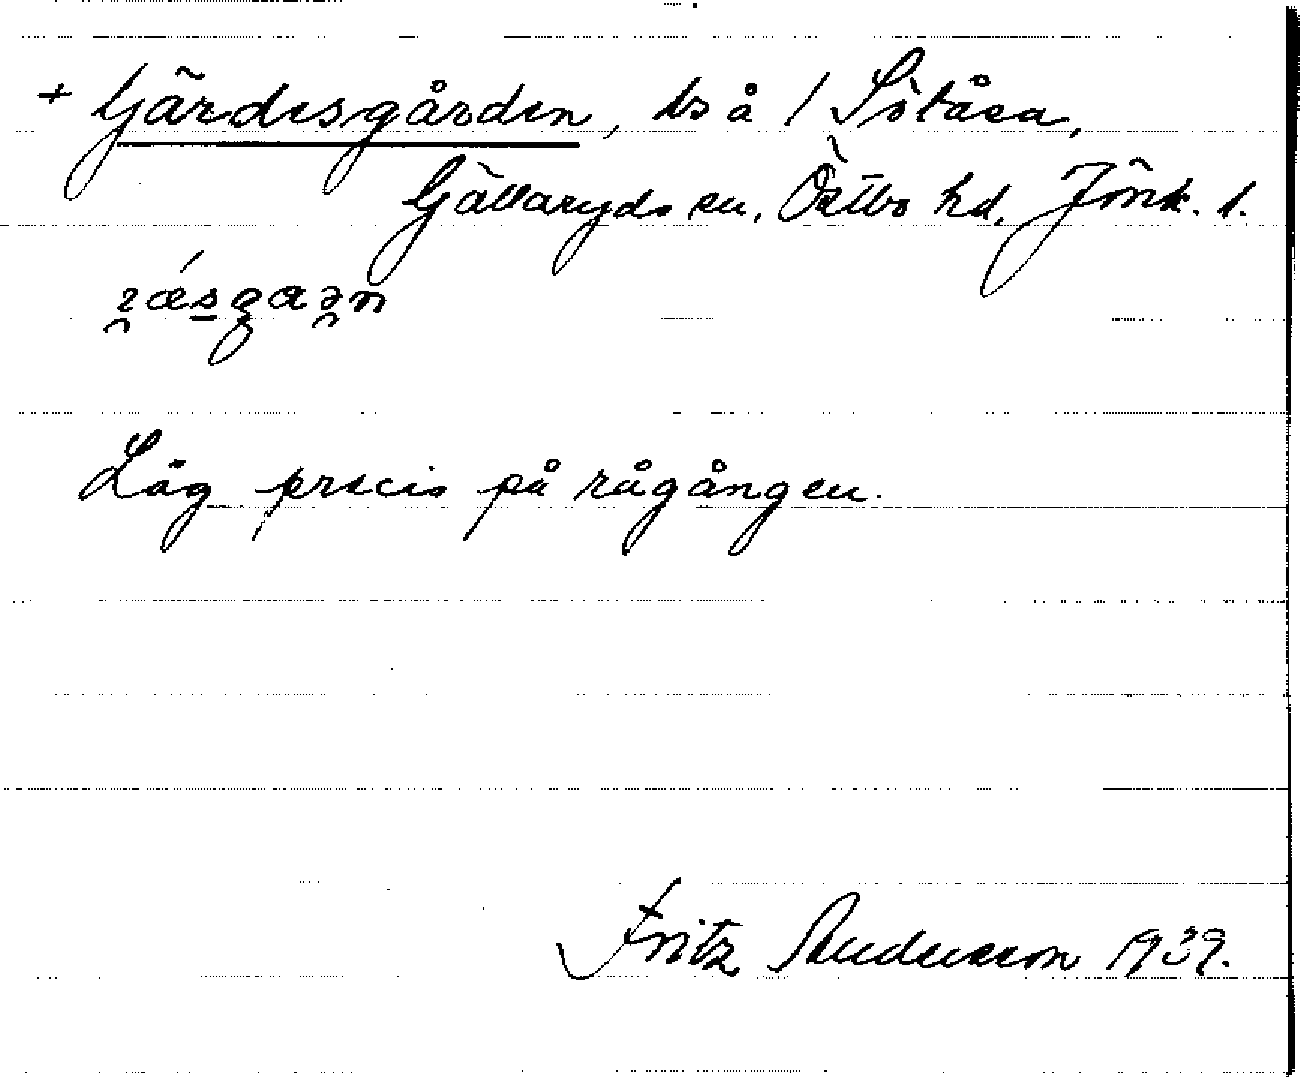 + Gärdesgården, ts å 1 Sötåsa,
Gällaryds sn, Östbo hd, Jönk. l.
Låg precis på rågången.
Fritz Andersson 1939.